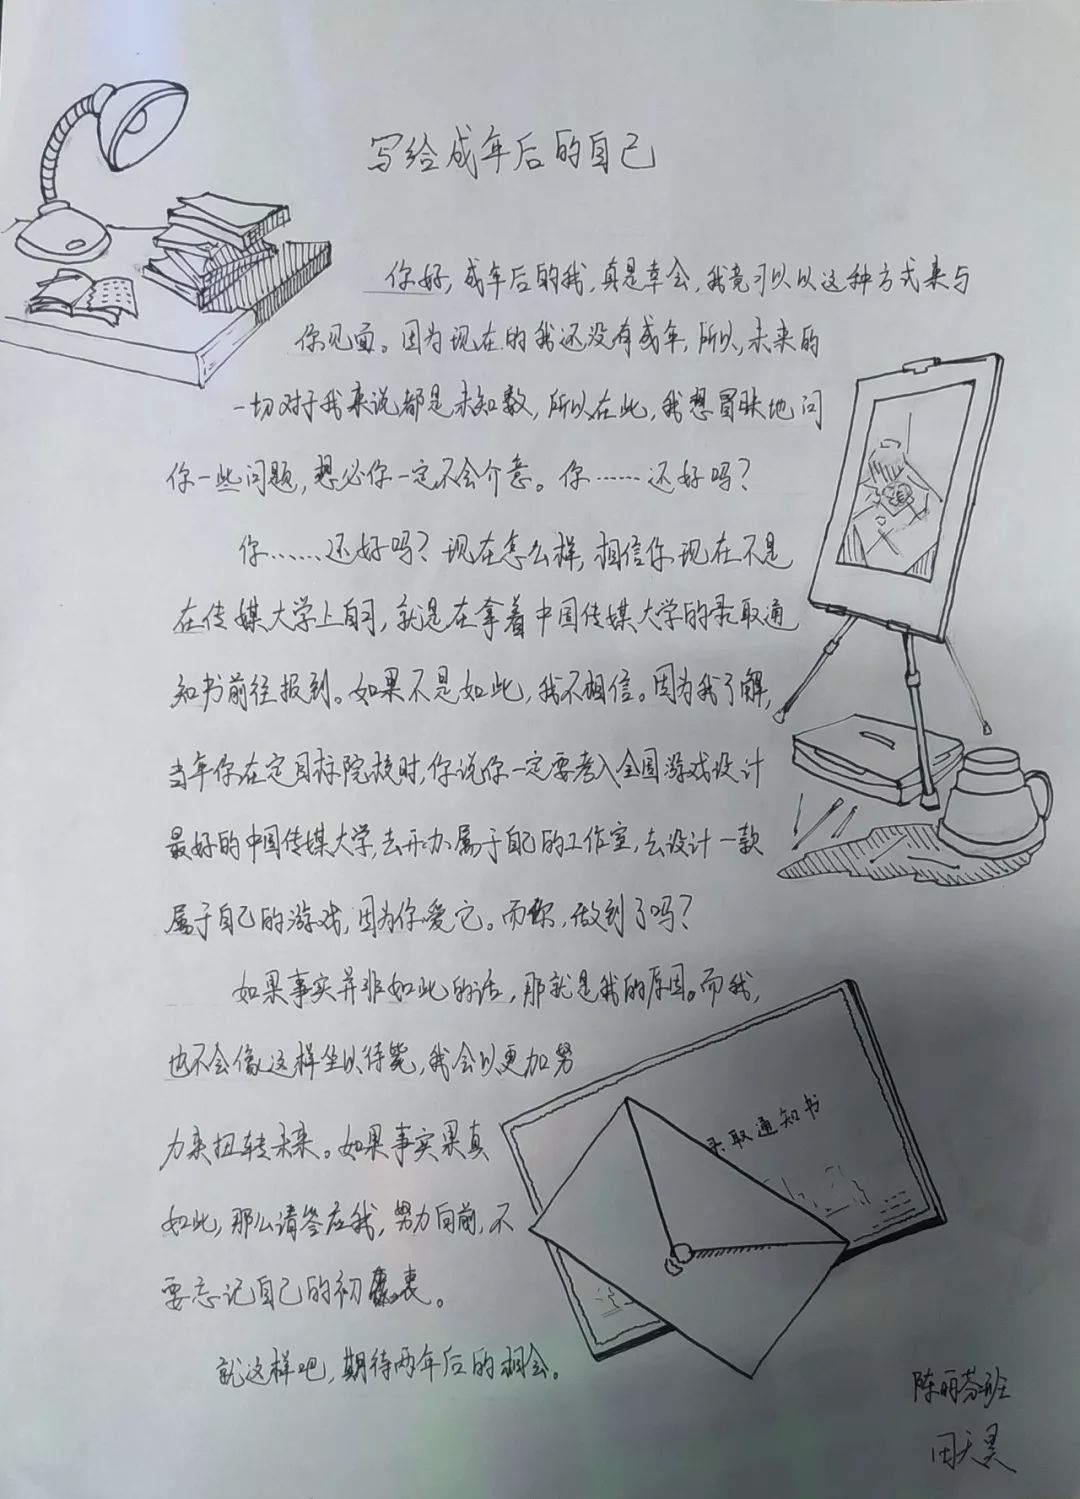 写给成年后的自己
你好,成年后的我,真是幸会,我竟可以以这种方式来与
你见面。因为现在的我还没有成年,所以,未来的
一切对于我来说都是未知数,所以在此,我想冒昧地问
你一些问题,想必你一定不会介意。你……还好吗?
你……还好吗?现在怎么样,相信你现在不是
在传媒大学上自习,就是在拿着中国传媒大学的录取通
知书前往报到。如果不是如此,我不相信。因为我了解,
当年你在定目标院校时,你说你一定要考入全国游戏设计
最好的中国传媒大学,去开办属于自己的工作室,去设计一款
属于自己的游戏,因为你爱它。而你,做到了吗?
如果事实并非如此的话,那就是我的原因。而我,
也不会像这样坐以待毙,我会以更加努
力来扭转未来。如果事实果真
如此,那么请答应我,努力向前,不
要忘记自己的初衷。
就这样吧,期待两年后的相会。
录取通知书
陈丽芬班
田天昊